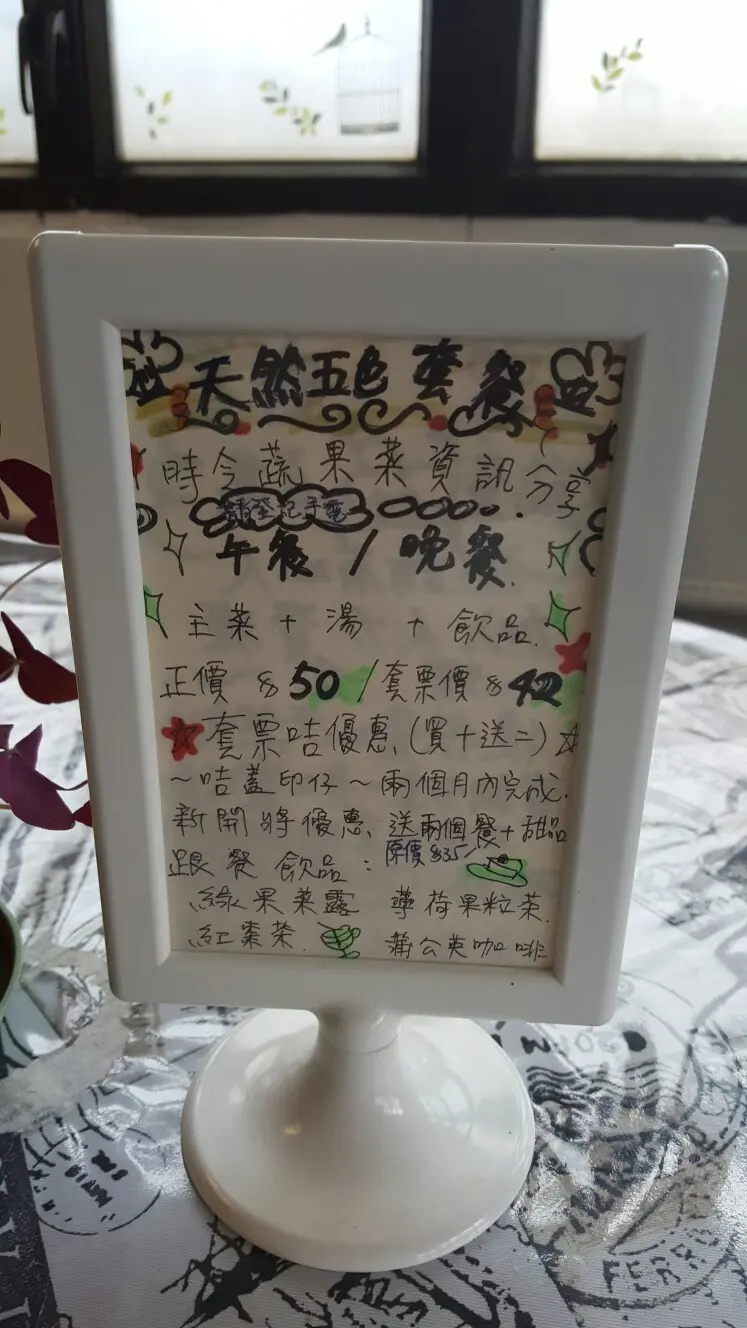 天然五色套餐
時令蔬果菜資訊分享
請登記手
午餐 / 晚餐.
主菜 + 湯 + 飲品.
正價 $50 / 套票價 $42
套票咭優惠 (買十送二)
~咭蓋印仔~兩個月內完成.
新開將優惠 送兩個餐+甜品
跟餐飲品: 原價$35
綠果菜露 薄荷果粒茶.
紅棗茶. 蒲公英咖啡
SOHN
FERR